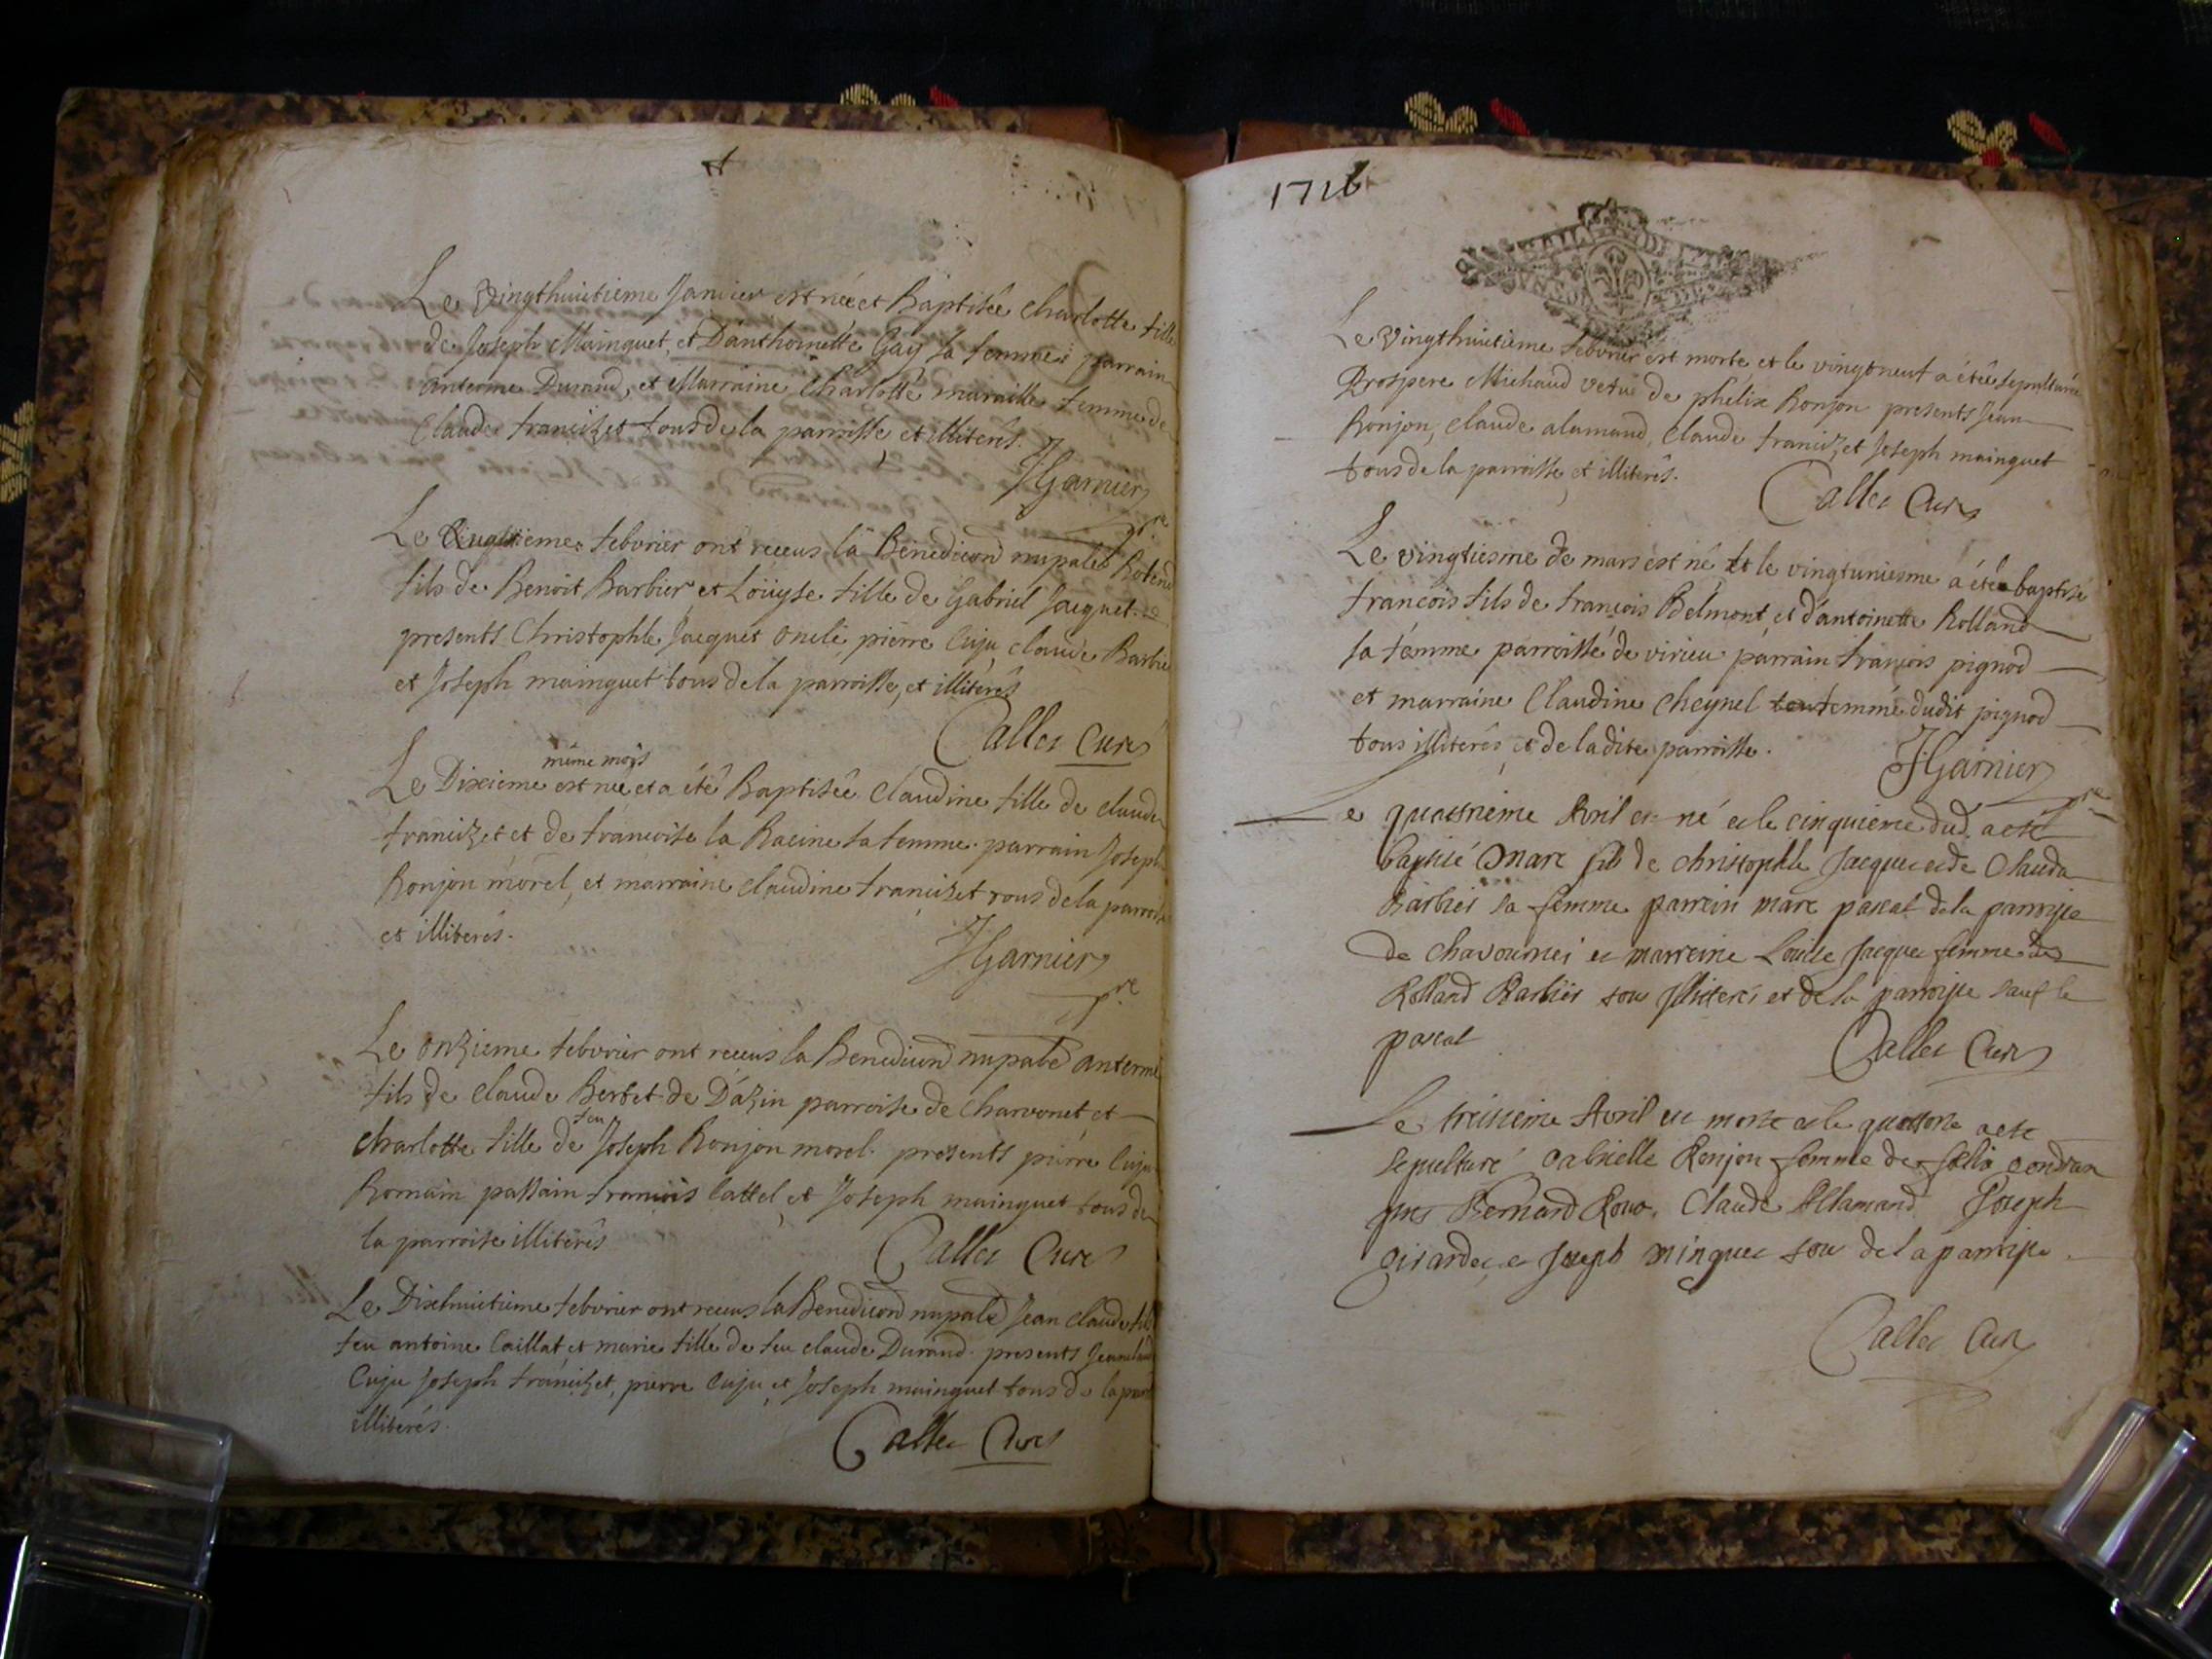 Le vingthuitieme Janvier est née et Baptisée Charlotte fille
de Joseph Mainguet, et D'anthoinette Gay sa femme parrain
anterme Durand, et Marraine Charlotte muraille femme de
Claude francizet tous de la parroisse, et illiterés.
JGarnier
pre
Le febvrier ont receus la Benediction nupale
fils de Benoit Barbier et Loüyse fille de Gabriel Jacquet
presents Christophle Jacquet oncle pierre Cuju claude Barbie
et Joseph mainguet tous de la parroisse, et illiterés
Callet Curé
même mois
Le Dixieme est née et a été Baptisée Claudine fille de claude
francizet et de francoise la Racine sa femme. parrain Joseph
Ronjon morel, et marraine claudine francizet tous de la parroisse
et illiterés.
JGarnier
pre
Le onzieme febvrier ont receus la Benediction nupale anterme
fils de Claude Berbet de D'azin parroise de Charvonet et
feu
charlotte fille de Joseph Ronjon morel. presents pierre Cuju
Romain passain francois lattel et Joseph mainguet tous de
la parroise illiterés
Callet Curé
Le Dixhuitieme febvrier ont receus la Benediction nupale Jean claude fils
feu antoine Caillat, et marie fille de feu claude Durand. presents Jean
Cuju Joseph francizet, pierre Cuju et Joseph mainguet tous de la par
illiterés.
Callet Curé
1716
Le vingthuitieme febvrier est morte, et le vingtneuf a étée sepulturée
Prospere Michaud vefue de phelix Ronjon presents Jean
Ronjon, claude alamand, claude francizet Joseph mainguet
tous de la parroisse, et illiterés.
Callet Curé
Le vingtiesme de mars est né et le vingtuniesme a été baptisé
francois fils de francois Belmont, et d'antoinette Rolland
sa femme parroisse de virieu parrain francois pignod
et marraine Claudine Cheynel femme dudit pignod
tous illiterés, et de ladite parroisse.
JGarnier
pre
Le quatrieme Avril est né et le cinquieme dud. a este
baptisé Marc fils de christophle Jacquet et de Clauda
Barbier sa femme parrein marc pascal de la parroisse
de chavournei et marreine Louise Jacquet femme de
Rolland Barbier tous Illiterés et de la parroisse sauf le
pascal
Callet Curé
Le treisieme Avril est morte et le quatorse a este
sepulturé Gabrielle Ronjon femme de felix
pnts Bernard Claude Allamand Joseph
Girardet, et Joseph minguet tous de la parroisse.
Callet Curé